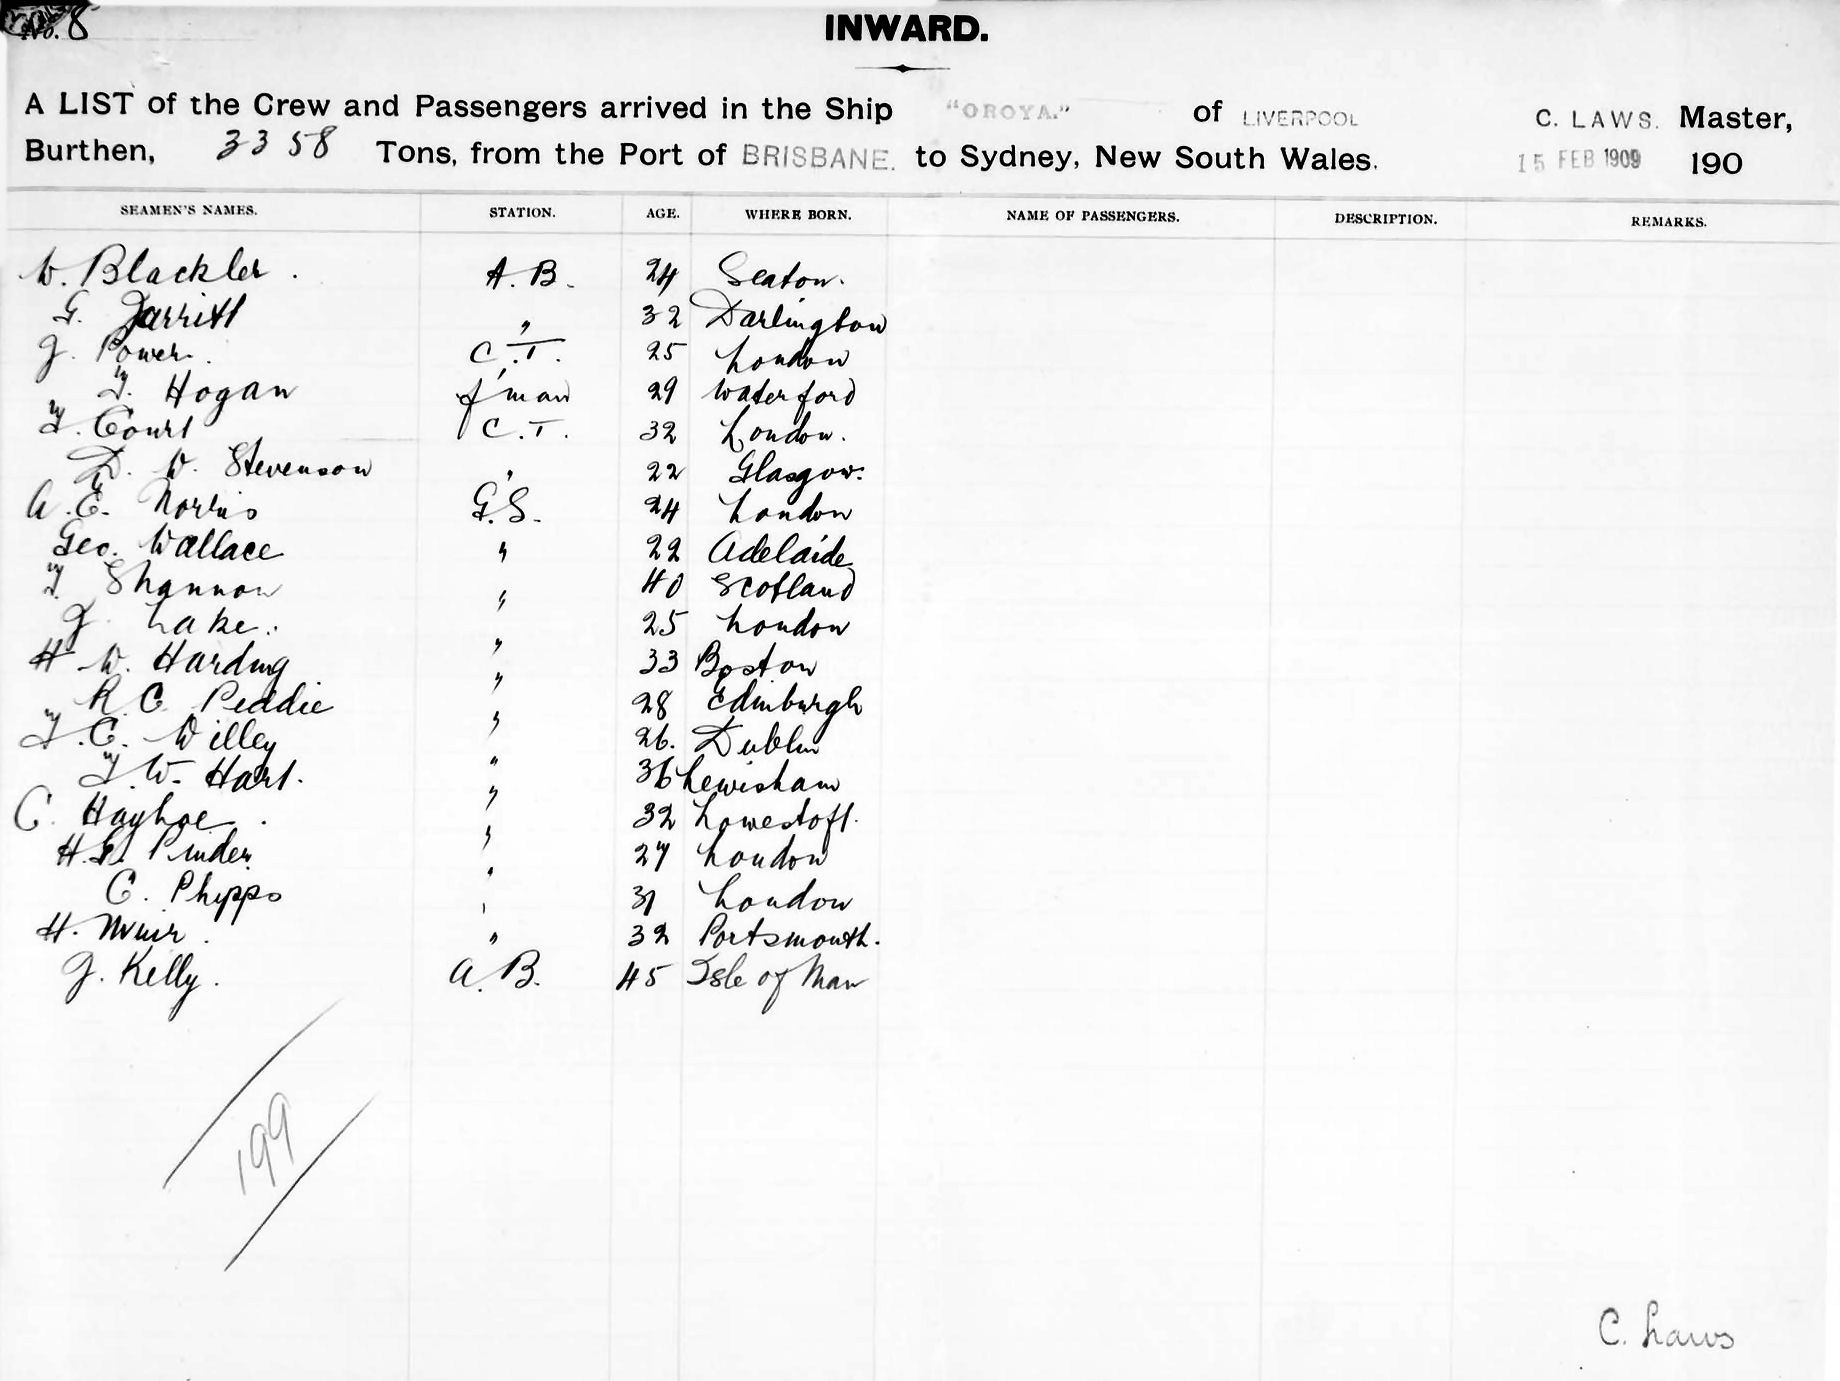 No. 8
INWARD.
A LIST of the Crew and Passengers arrived in the Ship "OROYA." of LIVERPOOL C. LAWS. Master,
Burthen, 3358 Tons, from the Port of BRISBANE. to Sydney, New South Wales. 15 FEB 1909 190
SEAMEN'S NAMES. STATION. AGE. WHERE BORN. NAME OF PASSENGERS. DESCRIPTION. REMARKS.
W. Blackler . A. B. 24 Seaton.
G. Jarritt " 32 Darlington
J. Power. C.T. 25 London
T. Hogan f'man 29 Waterford
T. Court C.T. 32 London.
D. W. Stevenson " 22 Glasgow.
A. E. Norris G.S. 24 London
Geo. Wallace " 22 Adelaide
T. Shannon " 40 Scotland
J. Lake. " 25 London
H W. Harding " 33 Boston
R C Peddie " 28 Edinburgh
T. C. Willey " 26. Dublin
T. W. Hart. " 36 Lewisham
C. Hayhoe . " 32 Lowestoft.
H. Pinder. " 27 London
C. Phipps " 31 London
H. Muir . " 32 Portsmouth.
J. Kelly . A. B. 45 Isle of Man
199
C. Laws